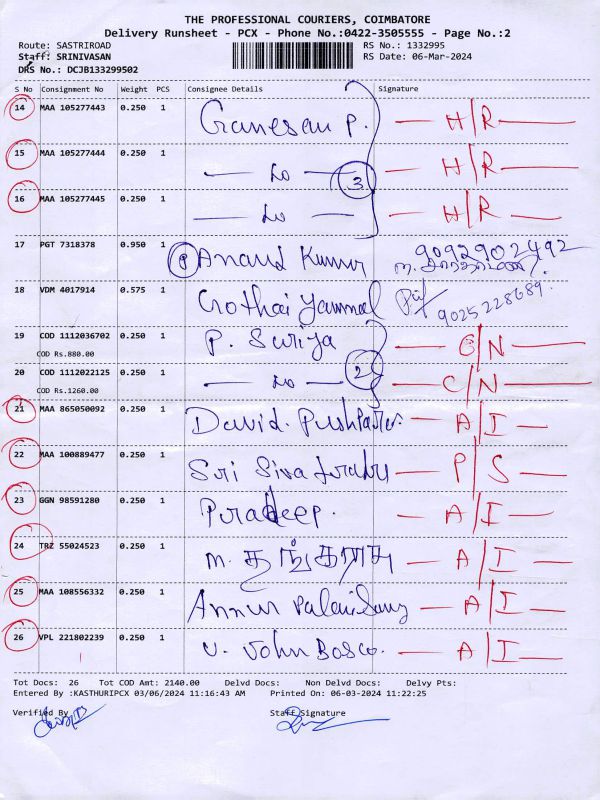 THE PROFESSIONAL COURIERS, COIMBATORE
Delivery Runsheet - PCX - Phone No.:0422-3505555 - Page No.:2
Route: SASTRIROAD RS No.: 1332995
Staff: SRINIVASAN RS Date: 06-Mar-2024
DRS No.: DCJB133299502
S No Consignment No Weight PCS Consignee Details Signature
14 MAA 105277443 0.250 1 Ganesan P. H/R
15 MAA 105277444 0.250 1 Do 3 H/R
16 MAA 105277445 0.250 1 Do H/R
17 PGT 7318378 0.950 1 P Anand Kumar 9092902492
18 VDM 4017914 0.575 1 Gothai yammal 9025228689
19 COD 1112036702 0.250 1 P. Suriya C/N
COD Rs.880.00
20 COD 1112022125 0.250 1 Do 2 C/N
COD Rs.1260.00
21 MAA 865050092 0.250 1 David. A/I
22 MAA 100889477 0.250 1 Sri Siva P/S
23 GGN 98591280 0.250 1 Puradeep. A/I
24 TRZ 55024523 0.250 1 m. தங்கராசு A/I
25 MAA 108556332 0.250 1 Annur A/I
26 VPL 221802239 0.250 1 V. John Bosco. A/I
Tot Docs: 26 Tot COD Amt: 2140.00 Delvd Docs: Non Delvd Docs: Delvy Pts:
Entered By :KASTHURIPCX 03/06/2024 11:16:43 AM Printed On: 06-03-2024 11:22:25
Verified By Staff Signature